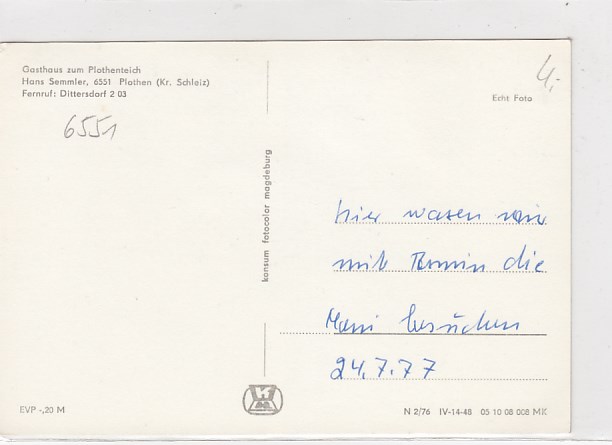 Gasthaus zum Plothenteich
Hans Semmler, 6551 Plothen (Kr. Schleiz)
Fernruf: Dittersdorf 2 03
6551
4,-
Echt Foto
konsum fotocolor magdeburg
hier waren wir
mit Armin die
Mani besuchen
24.7.77
EVP -,20 M
N 2/76 IV-14-48 05 10 08 008 MK